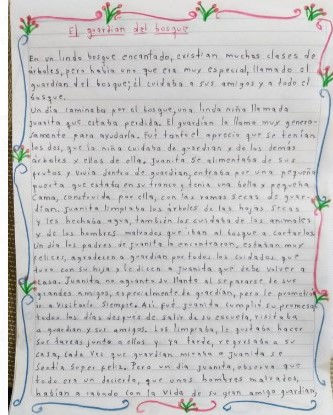 El guardian del bosque
En un lindo bosque encantado, existian muchas clases de
árboles, pero había uno que era muy especial, llamado el
guardian del bosque; él cuidaba a sus amigos y a todo el
bosque.
Un día caminaba por el bosque, una linda niña llamada
Juanita que estaba perdida. El guardian la llamo muy genero-
samente para ayudarla. Fue tanto el aprecio que se tenían
los dos, que la niña cuidaba de guardian y de los demás
árboles y ellos de ella, Juanita se alimentaba de sus
frutas y vivia dentro de guardian, entraba por una pequeña
puerta que estaba en su tronco y tenia una bella y pequeña
cama, construida por ella, con las ramas secas de guar-
dian. Juanita limpiaba los árboles de las hojas secas
y les hechaba agua, también los cuidaba de los animales
y de los hombres malvados que iban al bosque a cortarlos
Un día los padres de Juanita la encontraron, estaban muy
felices, agradecen a guardian por todos los cuidados que
tuvo con su hija y le dicen a Juanita que debe volver a
casa. Juanita no aguanto su llanto al separarse de sus
grandes amigos, especialmente de guardian, pero le prometio
a visitarlo. Siempre. Asi fue. Juanita cumplió su promesa
todos los días después de salir de su escuela, visitaba
a guardian y sus amigos. Los limpiaba, le gustaba hacer
sus tareas junto a ellos y ya tarde, regresaba a su
casa, cada vez que guardian miraba a Juanita se
sentía super feliz. Pero un día Juanita, observa que
todo era un decierto, que unos hombres malvados,
habían acabado con la vida de su gran amigo guardian,